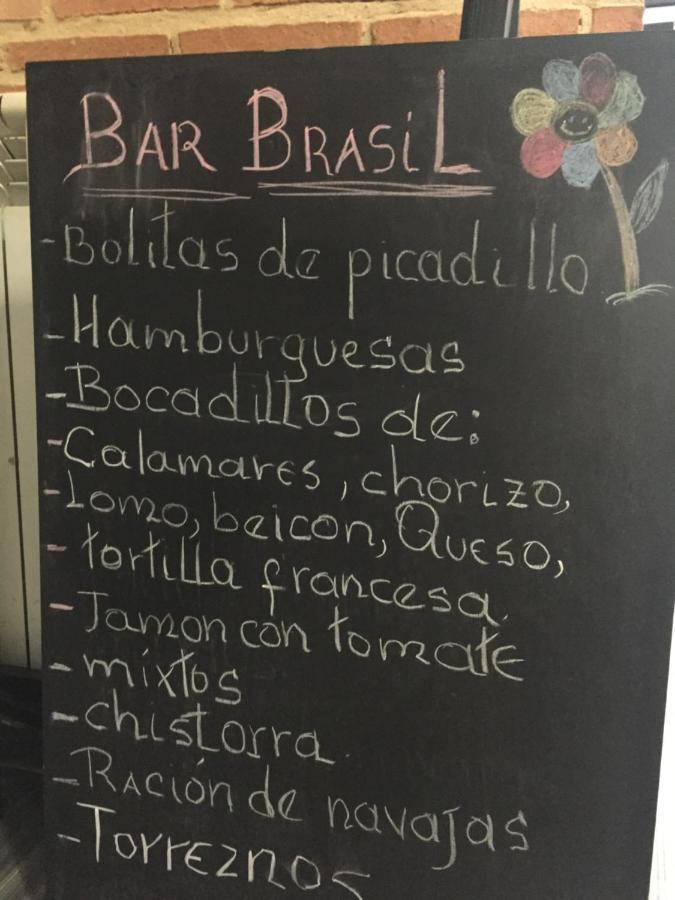 BAR BRASiL
- Bolitas de picadillo
- Hamburguesas
- Bocadillos de:
- Calamares, chorizo,
- Lomo, beicon, Queso,
- tortilla francesa.
- Jamon con tomate
- mixtos
- chistorra.
- Ración de navajas
- Torreznos